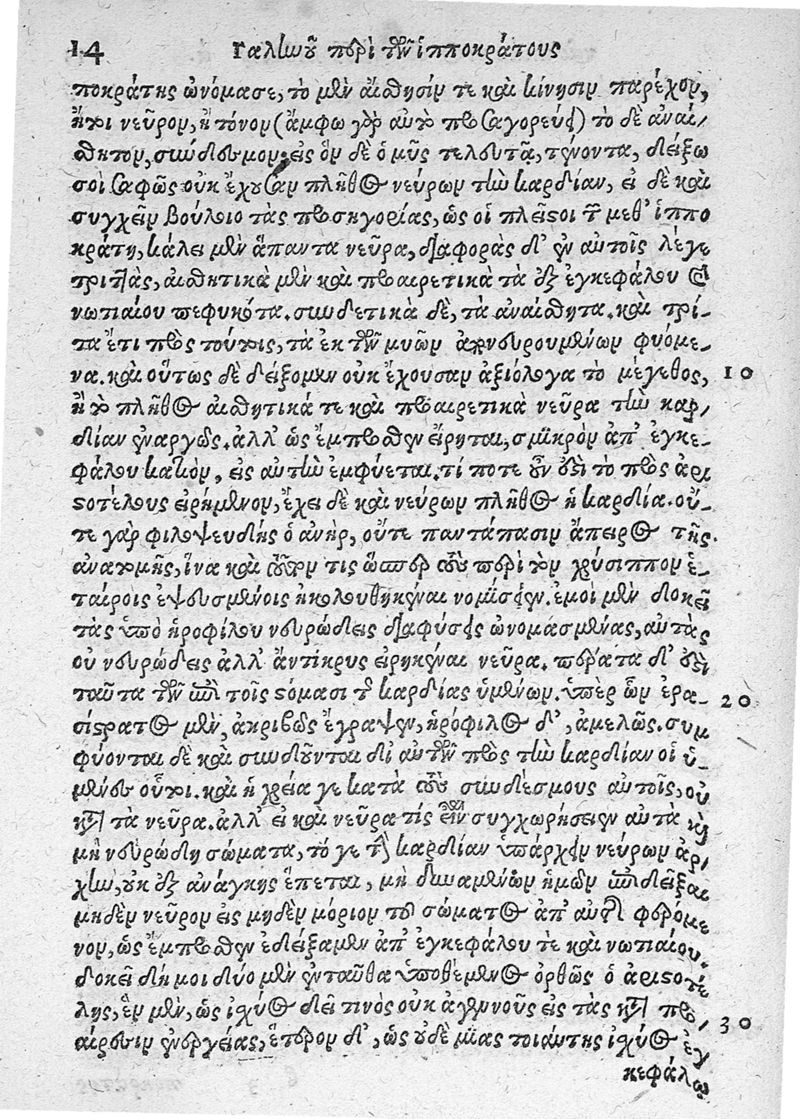 14 Γαλίωοῦ περὶ τῶν ἱπποκράτους
ποκράτης ὠνόμασε, τὸ μὲν αἴσθησίν τε καὶ κίνησιν παρέχον,
ἤτοι νεῦρον, ἢ τόνον (ἄμφω γὰρ αὐτὸ προσαγορεύει) τὸ δὲ ἀναί-
σθητον, σύνδεσμον, εἰς ὃν δὲ ὁ μῦς τελευτᾷ, τένοντα, δείξω
σοι σαφῶς οὐκ ἔχουσαν πλῆθος νεύρων τὴν καρδίαν, εἰ δὲ καὶ
συγχεῖν βούλοιο τὰς προσηγορίας, ὡς οἱ πλεῖστοι τῶν μεθ' ἱππο
κράτη, κάλει μὲν ἅπαντα νεῦρα, διαφορὰς δ' ἐν αὐτοῖς λέγε
τριττὰς, αἰσθητικὰ μὲν καὶ προαιρετικὰ τὰ ἐξ ἐγκεφάλου καὶ
νωτιαίου πεφυκότα. συνδετικὰ δὲ, τὰ ἀναίσθητα. καὶ τρί-
τα ἔτι πρὸς τούτοις, τὰ ἐκ τῶν μυῶν ἀπονευρουμένων φυόμε-
να. καὶ οὕτως δὲ δείξομεν οὐκ ἔχουσαν ἀξιόλογα τὸ μέγεθος, 10
ἢ τὸ πλῆθος αἰσθητικά τε καὶ προαιρετικὰ νεῦρα τὴν καρ-
δίαν ἐναργῶς. ἀλλ' ὡς ἔμπροσθεν εἴρηται, σμικρὸν ἀπ' ἐγκε-
φάλου κατιὸν, εἰς αὐτὴν ἐμφύεται. τί ποτε οὖν ἐστι τὸ πρὸς ἀρι
στοτέλους εἰρημένον, ἔχει δὲ καὶ νεύρων πλῆθος ἡ καρδία. οὔ-
τε γὰρ φιλοψευδὴς ὁ ἀνὴρ, οὔτε παντάπασιν ἄπειρος τῆς
ἀνατομῆς, ἵνα καὶ τοῦτόν τις ὥσπερ τοὺς περὶ τὸν χρύσιππον ἑ-
ταίροις ἐψευσμένοις ἠκολουθηκέναι νομίσειεν. ἐμοὶ μὲν δοκεῖ
τὰς ὑπὸ ἡροφίλου νευρώδεις διαφύσεις ὠνομασμένας, αὐτὰς
οὐ νευρώδεις ἀλλ' ἄντικρυς εἰρηκέναι νεῦρα. πέρατα δ' ἐστὶ
ταῦτα τῶν ἐπὶ τοῖς στόμασι τῆς καρδίας ὑμένων. ὑπὲρ ὧν ἐρα- 20
σίστρατος μὲν, ἀκριβῶς ἔγραψεν, ἡρόφιλος δ', ἀμελῶς. συμ
φύονται δὲ καὶ συνδοῦνται δι' αὐτῶν πρὸς τὴν καρδίαν οἱ ὑ-
μένες οὗτοι. καὶ ἡ χρεία γε κατὰ τοὺς συνδέσμους αὐτοῖς, οὐ
κατὰ τὰ νεῦρα. ἀλλ' εἰ καὶ νεῦρά τις εἶναι συγχωρήσειεν αὐτὰ τὰ
μὴ νευρώδη σώματα, τό γε τὴν καρδίαν ὑπάρχειν νεύρων ἀρ-
χὴν, οὐκ ἐξ ἀνάγκης ἕπεται, μὴ δυναμένων ἡμῶν ἐπιδεῖξαι
μηδὲν νεῦρον εἰς μηδὲν μόριον τοῦ σώματος ἀπ' αὐτῆς φερόμε
νον, ὡς ἔμπροσθεν ἐδείξαμεν ἀπ' ἐγκεφάλου τὲ καὶ νωτιαίου.
δοκεῖ δή μοι δύο μὲν ἐνταῦθα ὑποθέμενος ὀρθῶς ὁ ἀριστοτέ
λης, ἓν μὲν, ὡς ἰσχύος δεῖ τινὸς οὐκ ἀγεννοῦς εἰς τὰς κατὰ προ- 30
αίρεσιν ἐνεργείας, ἕτερον δ', ὡς οὐδὲ μιᾶς τοιαύτης ἰσχύος ἐγ
κεφάλῳ